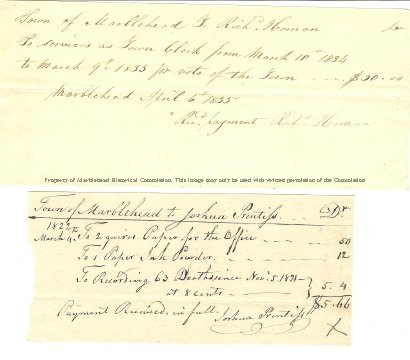 Town of Marblehead To Richd. Homan Dr
To services as Town Clerk from March 10th 1834
to March 9th 1835 per vote of the Town ---- $50.00
Marblehead April 6th 1835
Recd payment Richd. Homan
Property of Marblehead Historical Commission. This image may only be used with written permission of the Commission
Town of Marblehead to Joshua Prentiss .... Dr
1822
March 4. To 2 quires Paper for the Office --- 50
To 1 Paper Ink Powder. --- 12
To Recording 63 Deaths since Novr. 5. 1821 -
at 8 cents - } 5. 4
$5.66
Payment Received in full. Joshua Prentiss
X